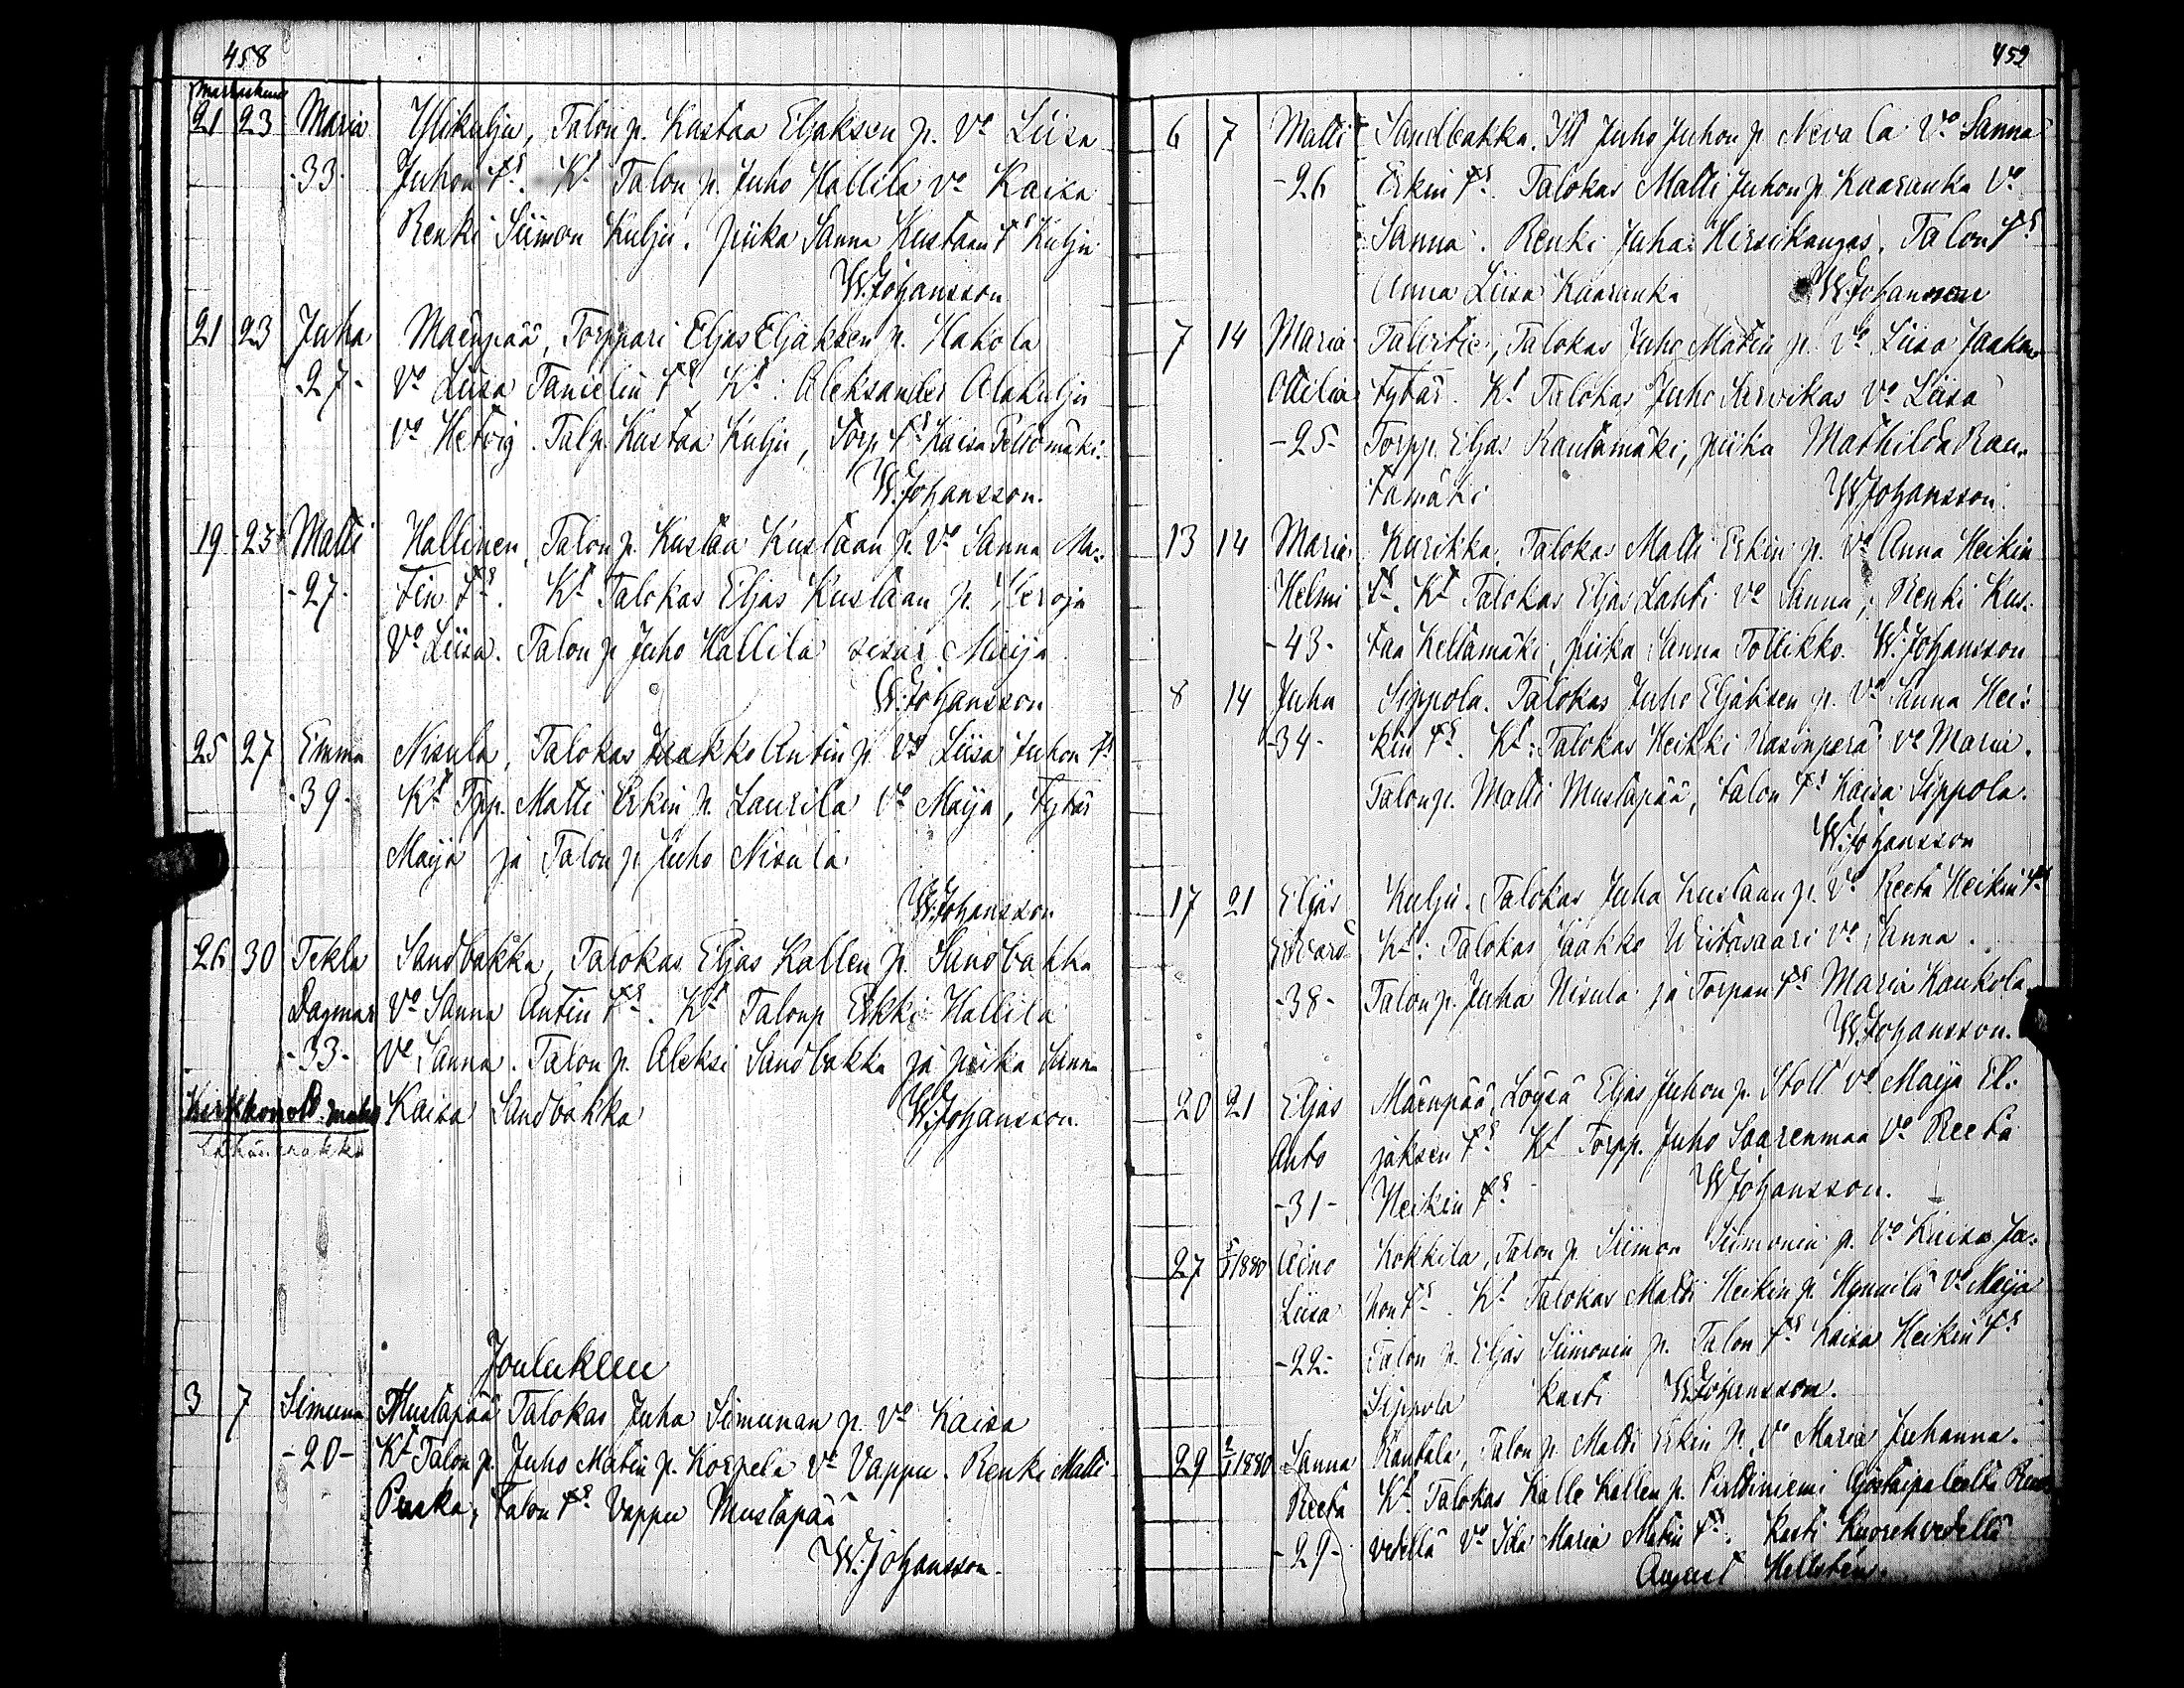 458
Marraskuus
21 23 Maria Ylikulju, Talon p. Kustaa Eljaksen p. Vo Liisa
-33- Juhon trs. Kt Talon p. Juho Hallila Vo Kaisa
Renki Siimon Kulju. piika Sanna Kustaan trs Kulju
W. Johansson
21 23 Juha Mäenpää, Torppari Eljas Eljaksen p. Hakola
27- Vo Liisa Tanielin trs. Kt: Aleksander Alakulju
Vo Hetvig. Talp. Kustaa Kulju, Torp. trs Kaisa Peltomäki.
W. Johansson.
19 23 Matti Hallinen, Talon p. Kustaa Kustaan p. Vo Sanna Ma-
-27- tin trs. Kt Talokas Eljas Kustaan p. Yliroja
Vo Liisa. Talon p Juho Hallila sisar Maija
W. Johansson
25 27 Emma Nisula, Talokas Jaakko Antin p. Vo Liisa Juhon trs
-39- Kt Tpp. Matti Erkin p. Laurila Vo Maija, tytär
Maija ja Talon p. Juho Nisula.
W. Johansson
26 30 Tekla Sandbakka, Talokas Eljas Kallen p. Sandbakka
Dagmar Vo Sanna Antin trs. Kt Talonp Erkki Hallila
-33- Vo Sanna. Talon p. Aleksi Sandbakka ja piika Sanna
Kaisa Sandbakka W. Johansson.
Joulukuu
3 7 Simuna Mustapää Talokas Juha Simunan p. Vo Kaisa
-20- Kt Talon p. Juho Matin p. Korpela Vo Vappu. Renki Matti
Puska, talon trs Vappu Mustapää
W. Johansson.
459
6 7 Matti Sandbakka. Itl Juho Juhon p Nevala Vo Sanna
-26 Erkin trs. Talokas Matti Juhon p. Kaaranka Vo
Sanna. Renki Juha Hirsikangas. Talon trs
Anna Liisa Kaaranka W. Johansson
7 14 Maria Talvitie, Talokas Juho Matin p. Vo Liisa Jaakon
Otilia tytär. Kt Talokas Juho Vo Liisa
-25- Torpp. Eljas Rantamäki, piika Mathilda Ran-
tamäki W. Johansson.
13 14 Maria Kurikka. Talokas Matti Erkin p. Vo Anna Heikin
Helmi trs. Kt Talokas Eljas Lahti Vo Sanna, Renki Kus-
-43- taa Keltamäki, piika Sanna Tollikko. W. Johansson
8 14 Juha Sippola. Talokas Juho Eljaksen p. Vo Sanna Hei-
-34- kin trs. Kt: Talokas Heikki Rasinperä Vo Maria.
Talon p. Matti Mustapää, talon trs Kaisa Sippola.
W. Johansson
17 21 Eljas Kulju. Talokas Juha Kustaan p. Vo Reeta Heikin trs
Edvard Kt: Talokas Jaakko Viitasaari Vo Sanna.
-38- Talon p. Juha Nisula ja Torpan trs Maria Koukola
W. Johansson.
20 21 Eljas Mäenpää, Loysä Eljas Juhon p. Stolt Vo Maija El-
Anto jaksen trs Kt Torpp. Juho Saarenmaa Vo Reeta
-31- Heikin trs W. Johansson.
27 5/1 1880 Aino Kokkila, Talon p. Siimon Siimonin p. Vo Kaisa Ju-
Liisa hon trs. Kt Talokas Matti Heikin p. Hynnilä Vo Maija
-22- Talon p. Eljas Siimonin p. Talon trs Kaisa Heikin trs
Sippola Kasti W. Johansson.
29 2/1 1880 Sanna Rantala, Talon p. Matti Erkin p. Vo Maria Juhanna.
Reeta Kt Talokas Kalle Kallen p. Pirttiniemi
-29- vedellä Vo Ida Maria Matin trs. Kasti Kuorehvedellä
August Hellstén.